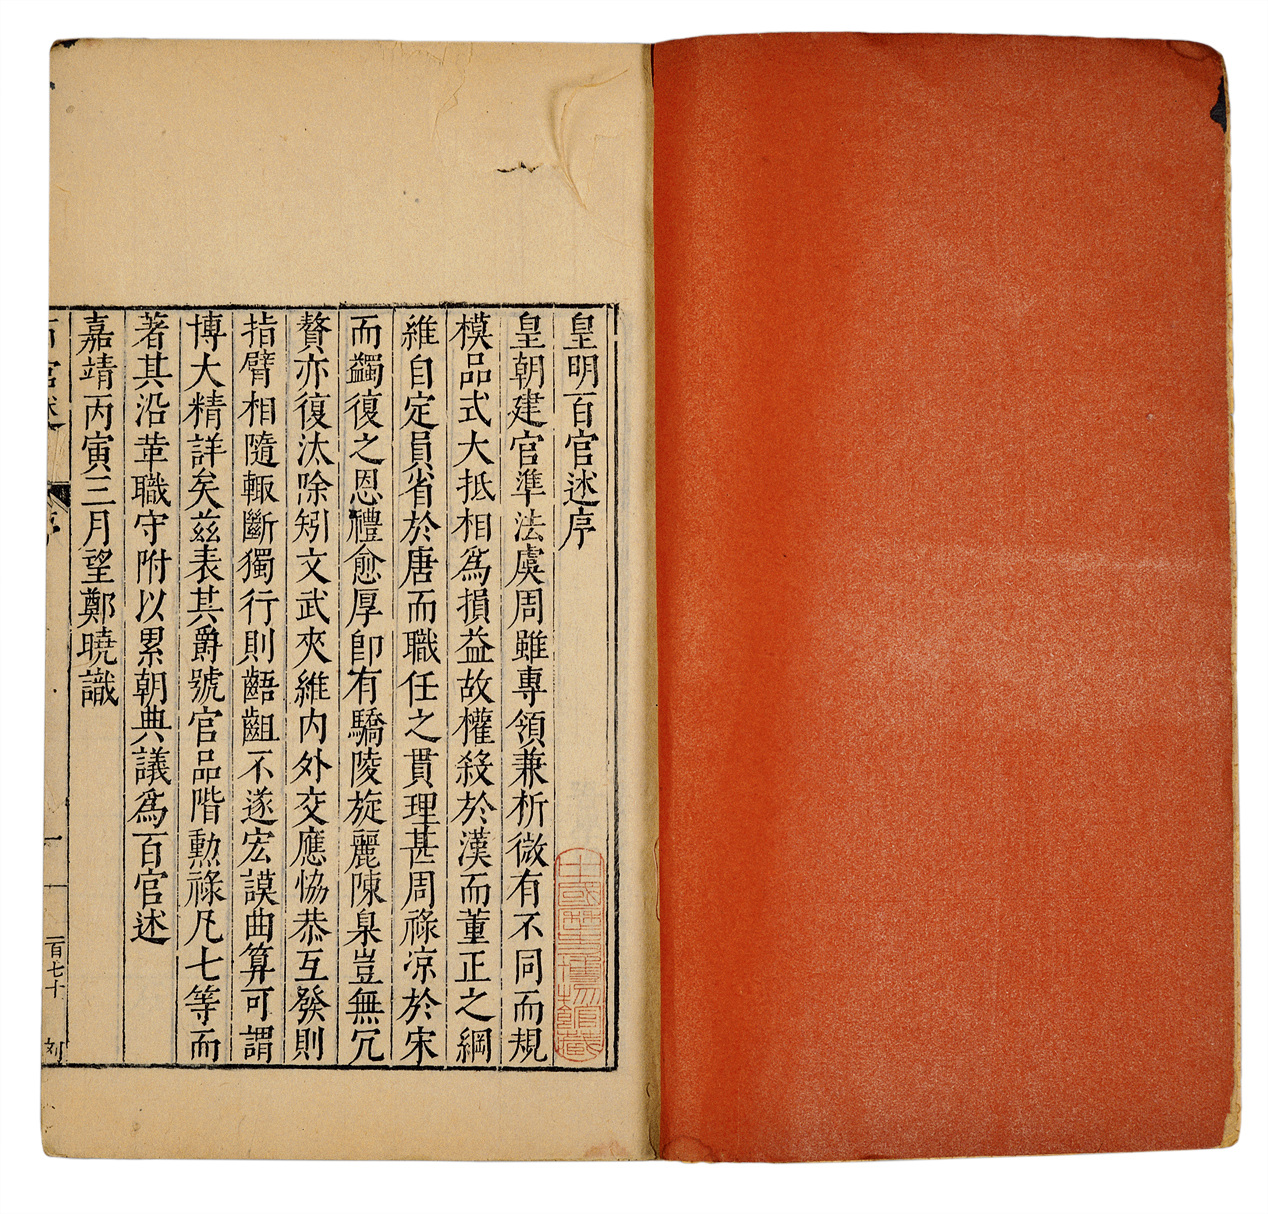 皇明百官述序
皇朝建官準法虞周雖專領兼析微有不同而規
模品式大抵相爲損益故權殺於漢而董正之綱
維自定員省於唐而職任之貫理甚周祿凉於宋
而蠲復之恩禮愈厚卽有驕陵旋麗陳臬豈無冗
贅亦復汰除矧文武夾維內外交應恊恭互發則
指臂相隨輙斷獨行則齬齟不遂宏謨曲算可謂
博大精詳矣茲表其爵號官品階勲祿凡七等而
著其沿革職守附以累朝典議爲百官述
嘉靖丙寅三月望鄭曉識
百官述
序
一
百七十
刘
中國歷史博物館藏